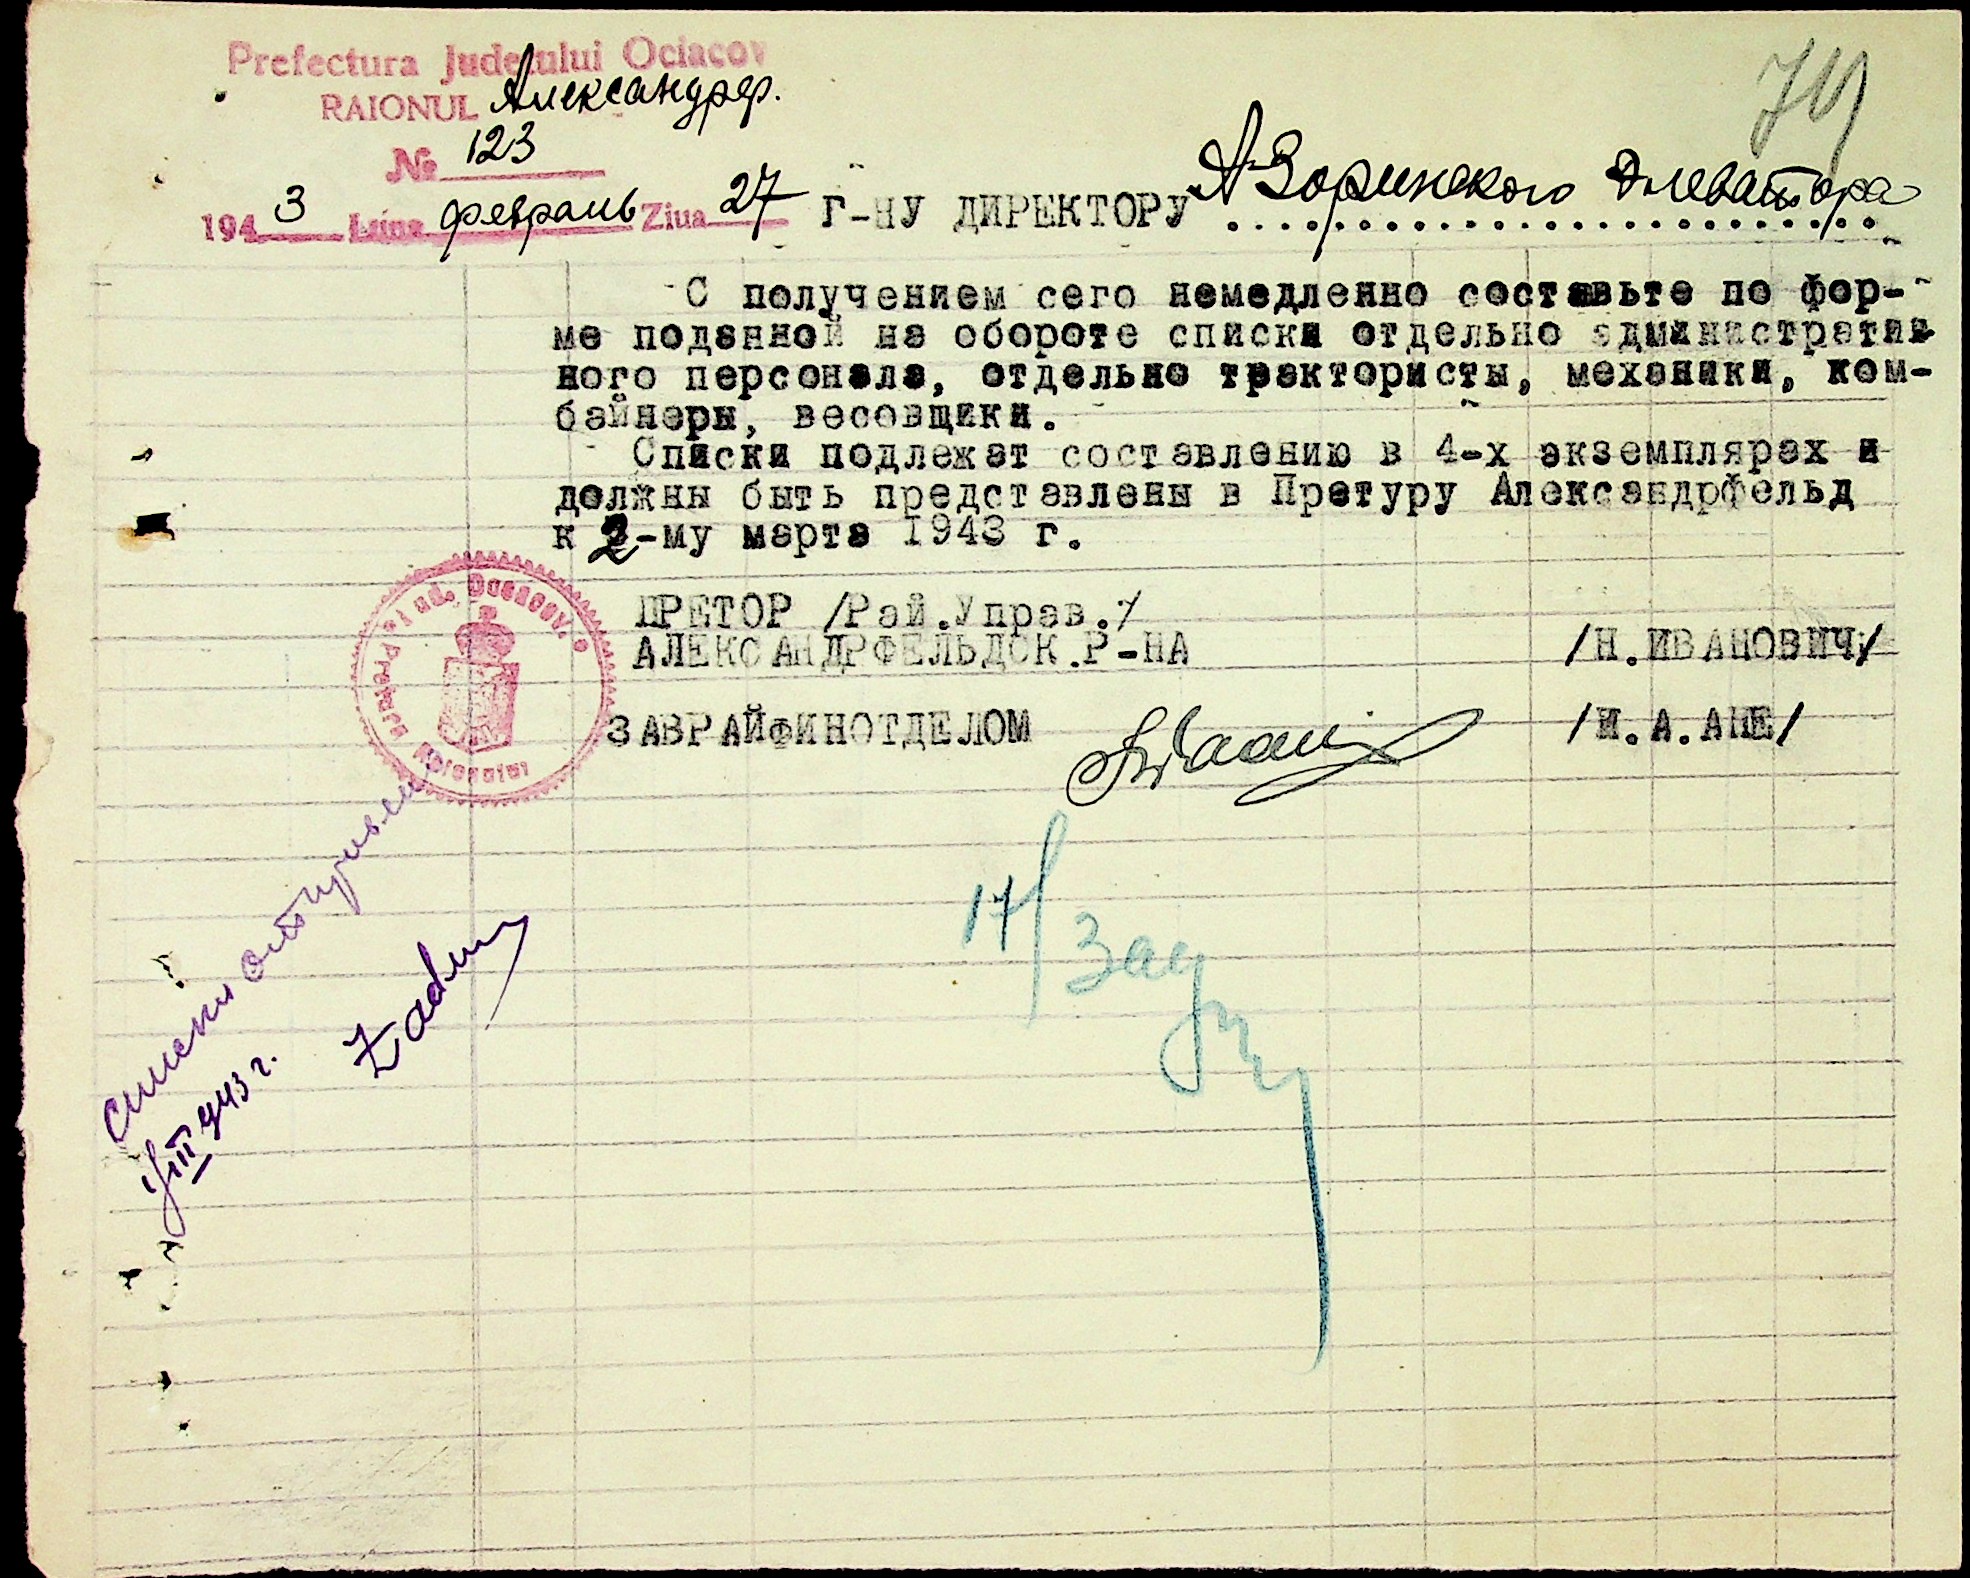 Prefectura Județului Ociacov
RAIONUL Александрф.
№ 123
1943 Luna февраль Ziua 27
74
Г-НУ ДИРЕКТОРУ А-Зоринского Элеватора
С получением сего немедленно составьте по фор-
ме поданной на обороте списки отдельно административ
ного персонала, отдельно трактористы, механики, ком-
байнеры, весовщики.
Списки подлежат составлению в 4-х экземплярах и
должны быть представлены в Претуру Александрфельд
к 2-му марта 1943 г.
ПРЕТОР /Рай.Управ./
АЛЕКСАНДРФЕЛЬДСК.Р-НА /Н.ИВАНОВИЧ/
ЗАВРАЙФИНОТДЕЛОМ /И.А.АНЕ/
Pretura Raionului
Jud. Ociacov
списки отправлены
III 943 г.
17/